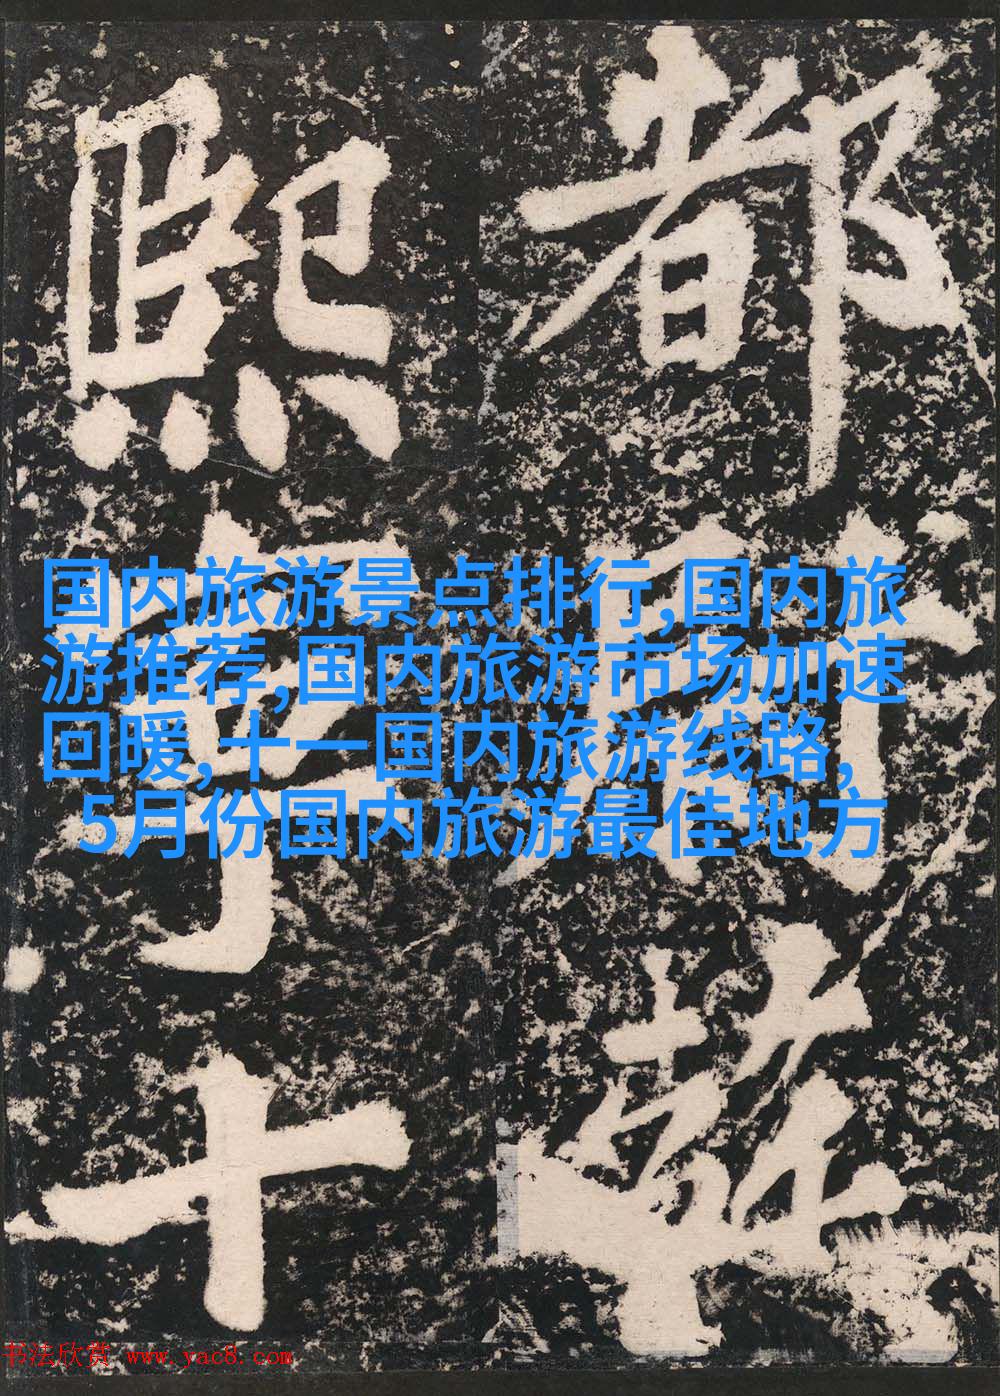 都
熙
十
国内旅游景点排行,国内旅
游推荐,国内旅游市场加速
回暖,十一国内旅游线路,
5月份国内旅游最佳地方
书法欣赏 www.yac8.com